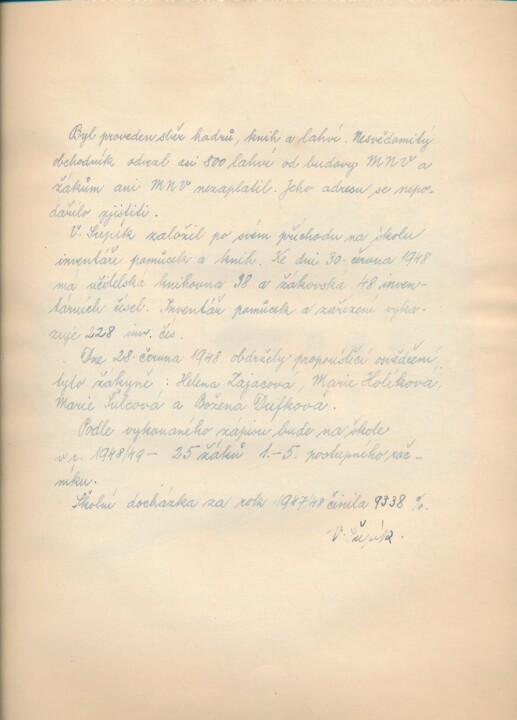 Byl proveden sběr hadrů, knih a lahví. Nesvědomitý
obchodník odvezl asi 800 lahví od budovy MNV a
žákům ani MNV nezaplatil. Jeho adresu se nepo-
dařilo zjistiti.
V. Šupík založil po svém příchodu na školu
inventáře pomůcek a knih. Ke dni 30. června 1948
má učitelská knihovna 38 a žákovská 48 inven-
tárních čísel. Inventář pomůcek a zařízení vyka-
zuje 228 inv. čís.
Dne 28. června 1948 obdržely propouštěcí osvědčení
tyto žákyně: Helena Zajacová, Marie Holíková,
Marie Šulcová a Božena Dufková.
Podle vykonaného zápisu bude na škole
v r. 1948/49 - 25 žáků 1.-5. postupného roč-
níku.
Školní docházka za rok 1947/48 činila 9338 %.
V. Šupík.